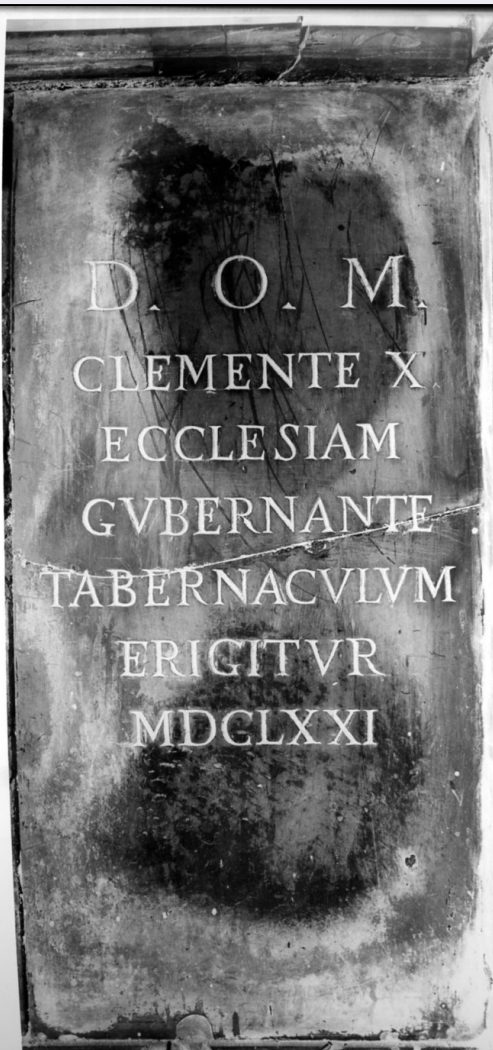 D. O. M.
CLEMENTE X.
ECCLESIAM
GVBERNANTE
TABERNACVLVM
ERIGITVR
MDCLXXI